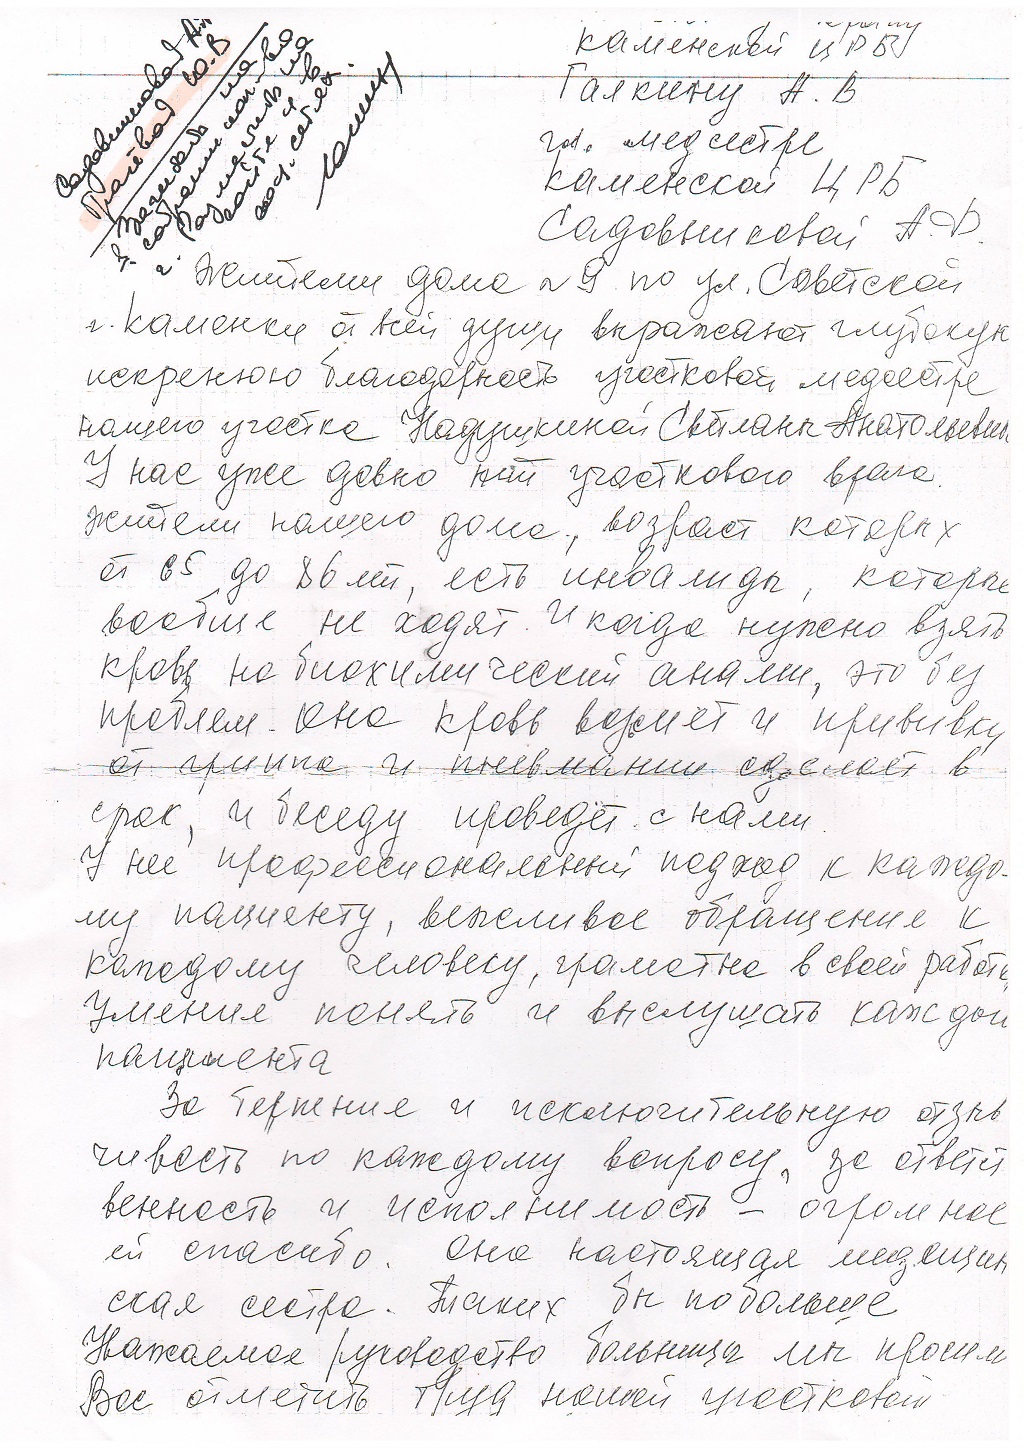 Каменской ЦРБ
Галкину А.В
гл. медсестре
Каменской ЦРБ
Садовниковой А.Ф.
Садовниковой
Ю.В
1. Зачитать на
2. Разместить на
сайте и в
соц. сетях.
Жители дома №9 по ул. Советской
г. Каменки от всей души выражают глубокую
искренюю благодарность участковой медсестре
нашего участка Надушкиной Светлане Анатольевне
У нас уже давно нет участкового врача.
Жители нашего дома, возраст которых
от 65 до 86 лет, есть инвалиды, которые
вообще не ходят. И когда нужно взять
кровь на биохимический анализ, это без
проблем. Она кровь возьмет и прививку
от гриппа и пневмании сделает в
срок, и беседу проведёт с нами.
У неё профессиональный подход к каждо-
му пациенту, вежливое обращение к
каждому человеку, грамотна в своей работе,
Умение понять и выслушать каждого
пациента
За терпение и исключительную отзы
чивость по каждому вопросу, за ответст
венность и исполнимость – огромное
ей спасибо. Она настоящая медицин
ская сестра. Таких бы побольше
Уважаемое руководство больницы мы просим
Вас отметить труд нашей участковой